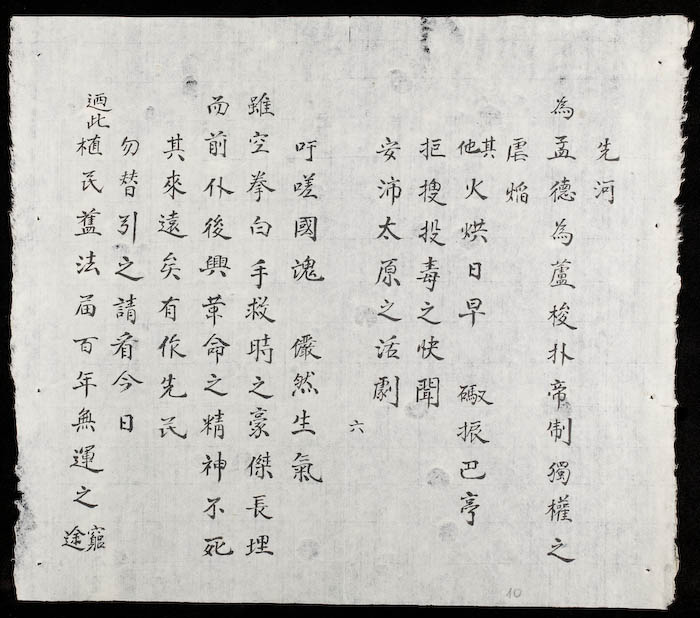 先河
為孟德為蘆梭扑帝制獨權之
虐焰
其他火烘日早 碬振巴亭
拒搜投毒之快聞
安沛太原之活劇
六
吁嗟國魂 儼然生氣
雖空拳白手救時之豪傑長埋
而前仆後興革命之精神不死
其來遠矣有作先民
勿替引之請看今日
迺此植民舊法屆百年無運之窮途
10